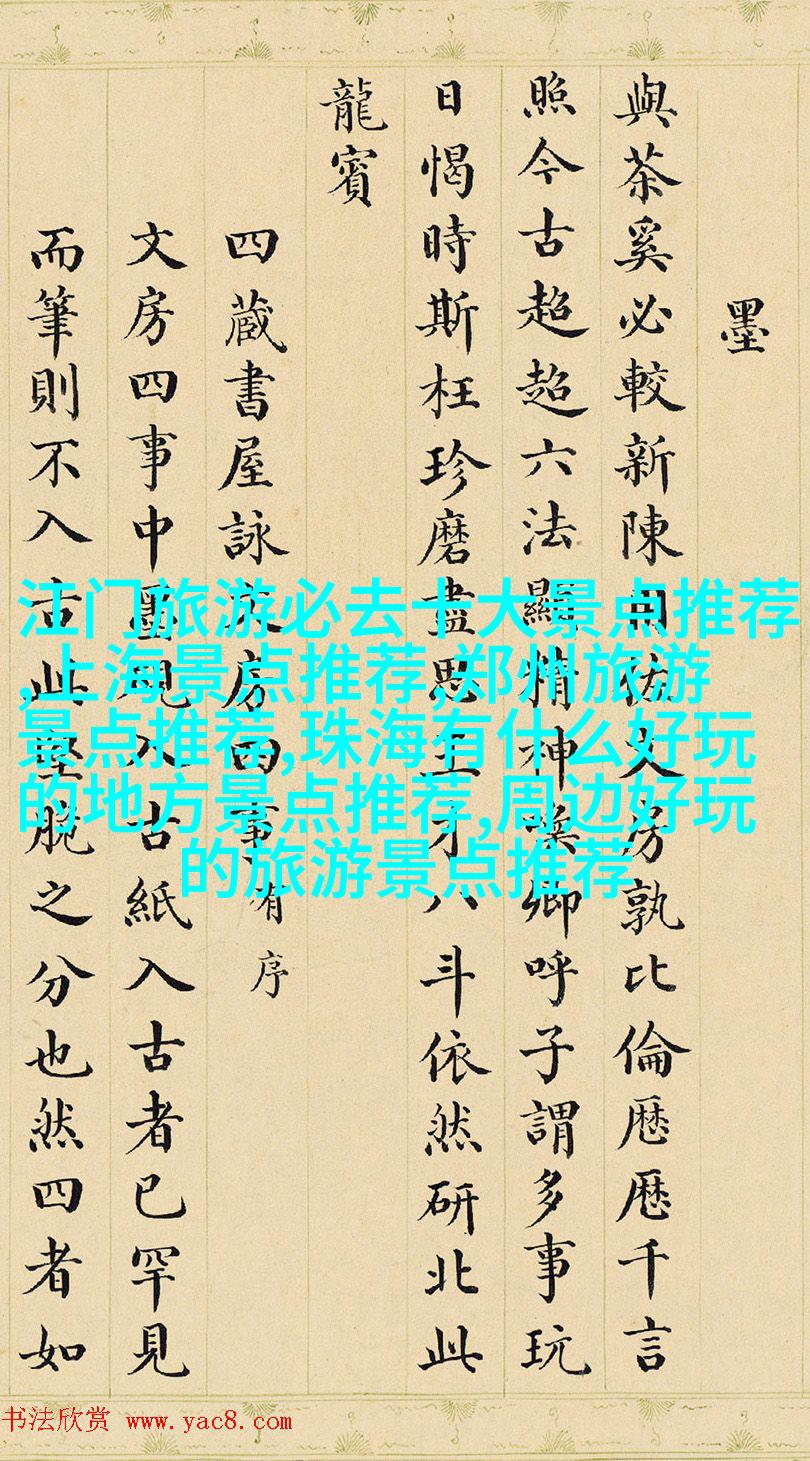 墨
與茶奚必較新陳用佐文房孰比倫厯厯千言
照今古超超六法顯精神喚卿呼子謂多事玩
日愒時斯枉珍磨盡思王才八斗依然研北此
龍賓
四蔵書屋詠文房四事有序
文房四事中墨硯入古紙入古者已罕見
而筆則不入古此堅脆之分也然四者如
江门旅游必去十大景点推荐
,上海景点推荐,郑州旅游
景点推荐,珠海有什么好玩
的地方景点推荐,周边好玩
的旅游景点推荐
书法欣赏 www.yac8.com